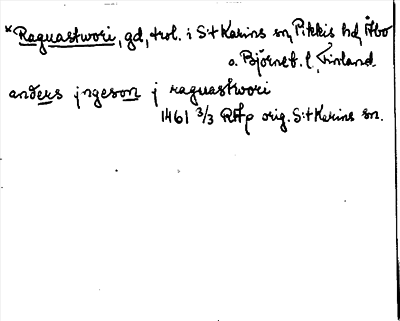 *Raguastwori, gd, trol. i S:t Karins sn, Pikkis hd, Åbo
o. Björneb. l, Finland
anders jngeson j raguastwori
1461 3/3 RAp orig. S:t Karins sn.